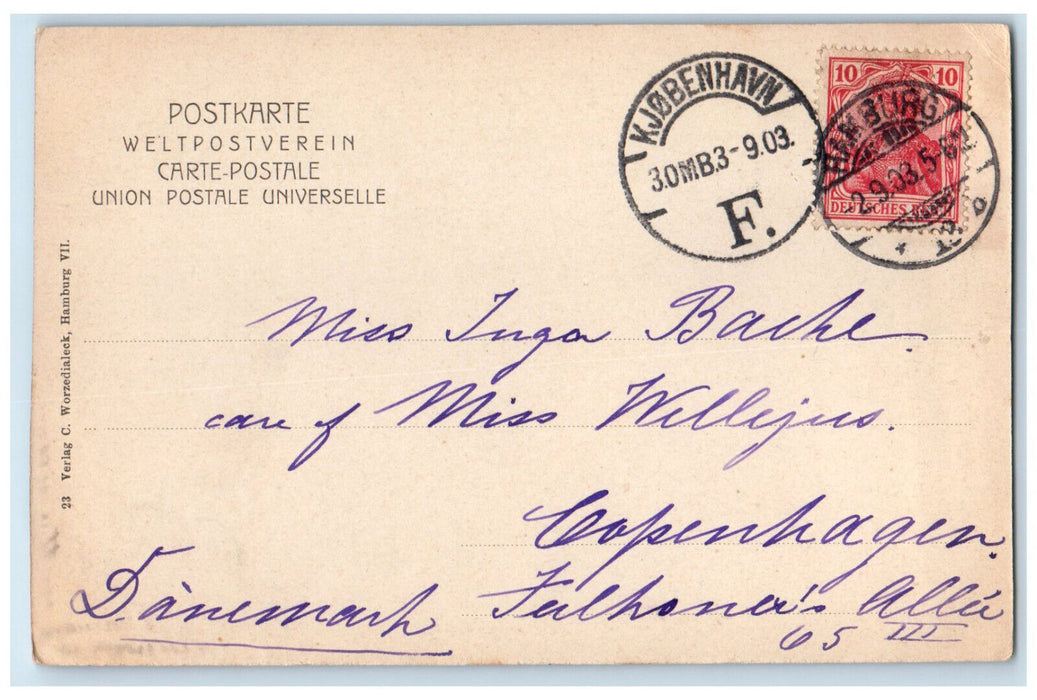 POSTKARTE
WELTPOSTVEREIN
CARTE-POSTALE
UNION POSTALE UNIVERSELLE
KJØBENHAVN
3.OMB.3-9.03.
F.
10 10
DEUTSCHES REICH
HAMBURG
2.9.03.5-6
23 Verlag C. Worzedialeck, Hamburg VII.
Miss Inga Bache.
care of Miss Willejus.
Copenhagen.
Dänemark
Falkoner's Allée
65 III